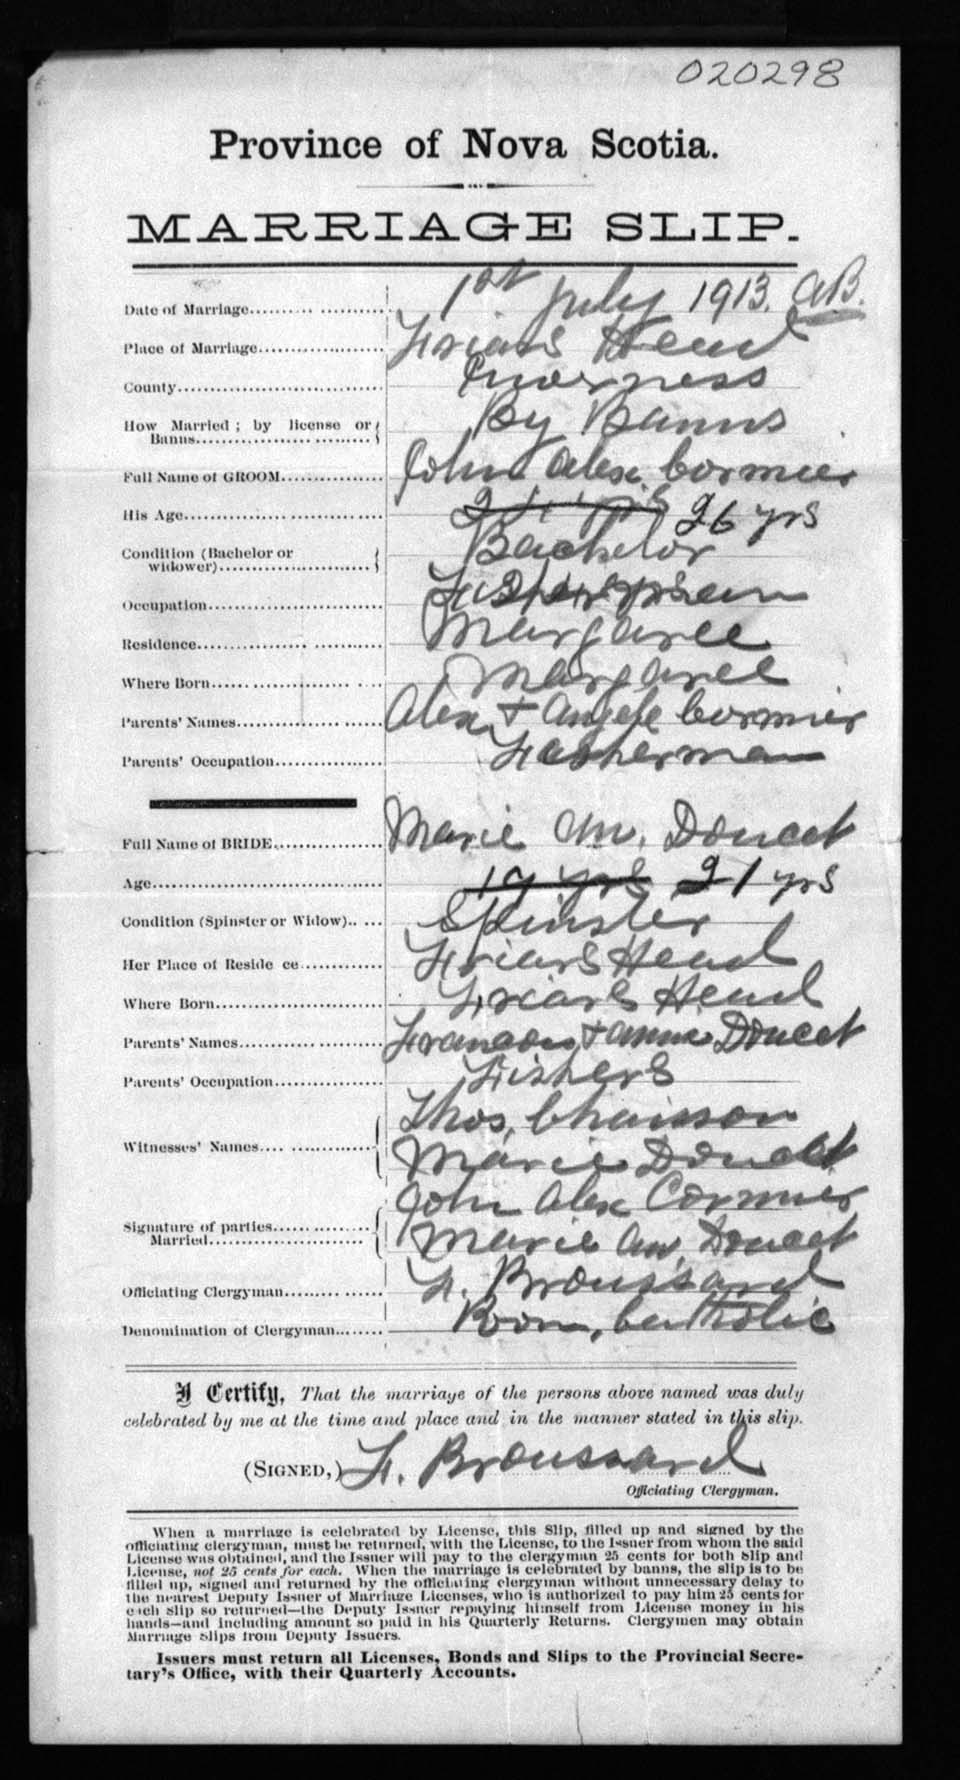 020298
Province of Nova Scotia.
MARRIAGE SLIP.
Date of Marriage.................... 1st July 1913. AB.
Place of Marriage.................... Friars Head
County.................... Inverness
How Married ; by license or
Banns.................... By Banns
Full Name of GROOM............... John Alex. Cormier
His Age.................... 24 yrs 26 yrs
Condition (Bachelor or
widower).................... Bachelor
Occupation.................... Fisherman
Residence.................... Margaree
Where Born.................... Margaree
Parents' Names.................... Alex + Angele Cormier
Parents' Occupation.................... Fisherman
Full Name of BRIDE.................... Marie An. Doucet
Age.................... 19 yrs 21 yrs
Condition (Spinster or Widow)...... Spinster
Her Place of Reside ce.................... Friars Head
Where Born.................... Friars Head
Parents' Names.................... Francois + Annie Doucet
Parents' Occupation.................... Fishers
Thos. Chaisson
Witnesses' Names.................... Marie Doucet
John Alex Cormier
Signature of parties
Married.................... Marie An. Doucet
Officiating Clergyman.................... F. Broussard
Denomination of Clergyman........ Rom. Catholic
I Certify, That the marriage of the persons above named was duly
celebrated by me at the time and place and in the manner stated in this slip.
(SIGNED,) F. Broussard
Officiating Clergyman.
When a marriage is celebrated by License, this Slip, filled up and signed by the
officiating clergyman, must be returned, with the License, to the Issuer from whom the said
License was obtained, and the Issuer will pay to the clergyman 25 cents for both Slip and
License, not 25 cents for each. When the marriage is celebrated by banns, the slip is to be
filled up, signed and returned by the officiating clergyman without unnecessary delay to
the nearest Deputy Issuer of Marriage Licenses, who is authorized to pay him 25 cents for
each slip so returned—the Deputy Issuer repaying himself from License money in his
hands—and including amount so paid in his Quarterly Returns. Clergymen may obtain
Marriage Slips from Deputy Issuers.
Issuers must return all Licenses, Bonds and Slips to the Provincial Secre-
tary's Office, with their Quarterly Accounts.